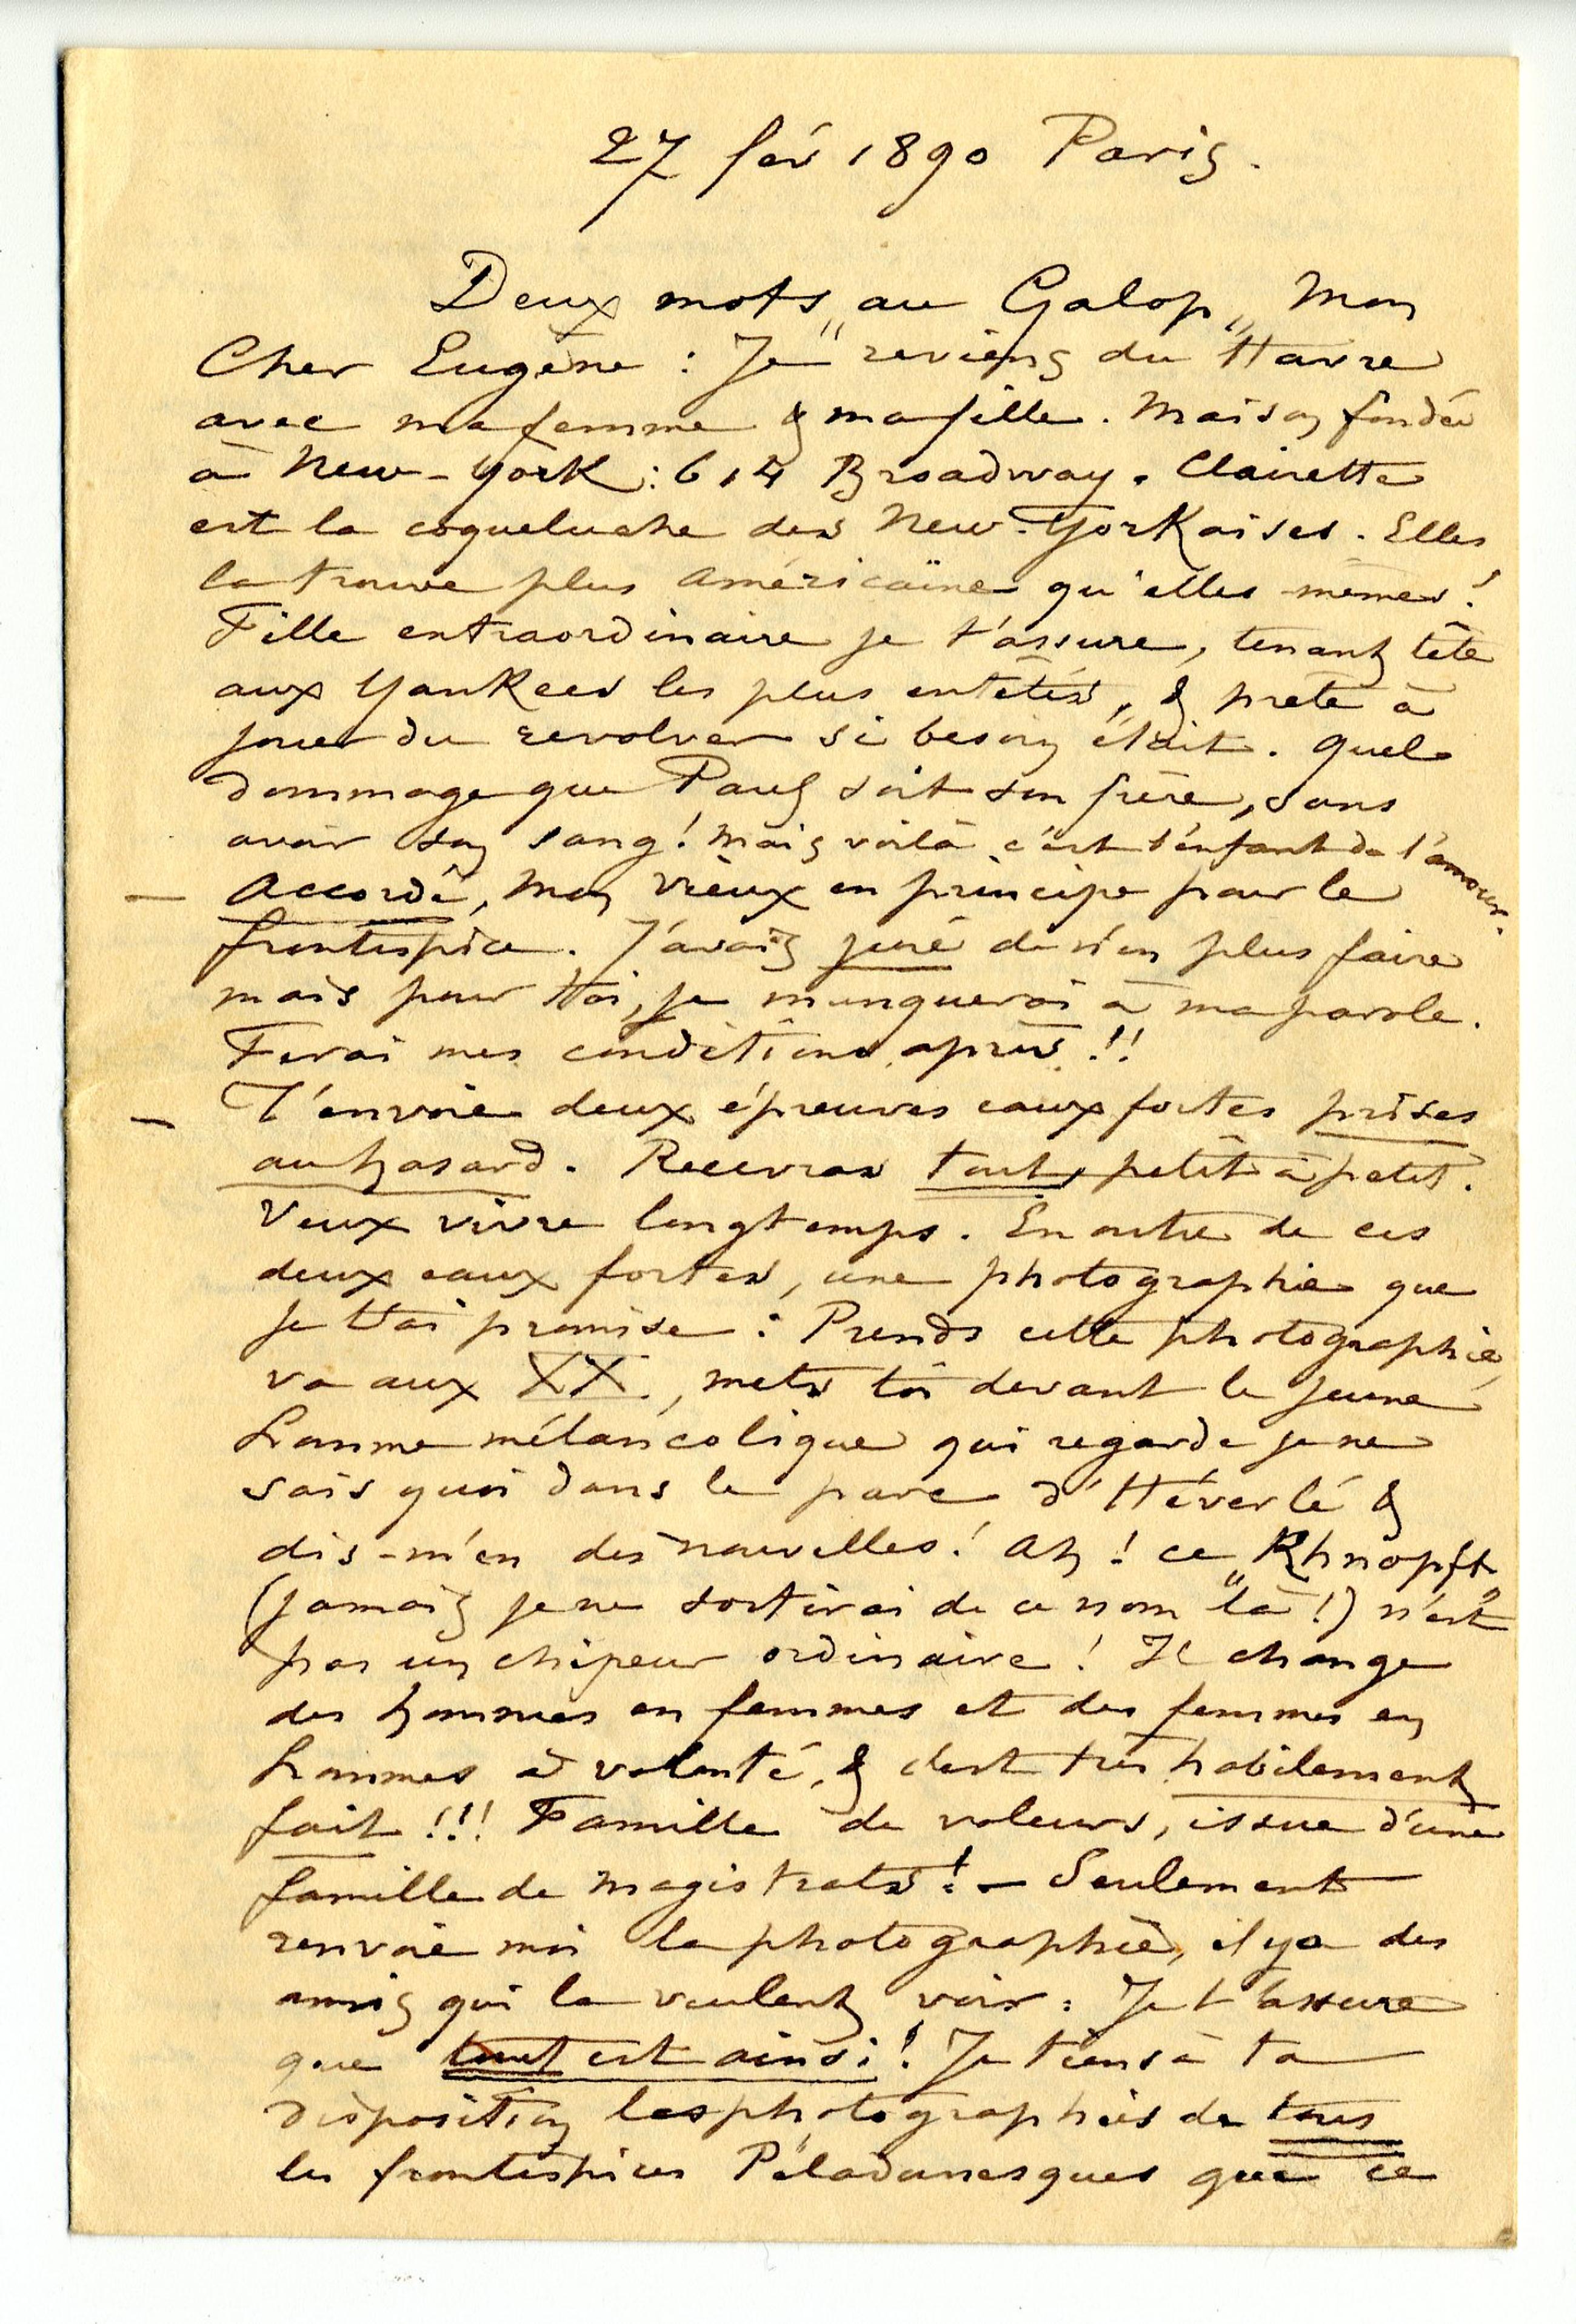 27 fév 1890 Paris.
Deux mots „au Galop„ Mon
Cher Eugène : Je reviens du Havre
avec ma femme & ma fille. Maison fondée
à New-York : 614 Broadway. Clairette
est la coqueluche des New-Yorkaises. Elles
la trouve plus américaine qu'elles mêmes !
Fille extraordinaire je t'assure, tenant tête
aux Yankees les plus entêtés, & prete à
jouer du revolver si besoin était. Quel
dommage que Paul soit son frère, sans
avoir son sang ! Mais voilà c'est l'enfant de l'amour.
— Accordé, mon vieux en principe pour le
frontispice. J'avais juré de n'en plus faire
mais pour toi, je manquerai à ma parole.
Ferai mes conditions après !!
— T'envoie deux épreuves eaux fortes prises
au hasard. Recevras tout, petit à petit.
Veux vivre longtemps. En outre de ces
deux eaux fortes, une photographie que
je t'ai promise : Prends cette photographie,
va aux XX., mets toi devant le jeune
homme mélancolique qui regarde je ne
sais quoi dans le parc d'Héverlé &
dis-m'en des nouvelles ! Ah ! ce „Khnopff„
(jamais je ne sortirai de ce nom là !) n'est
pas un chipeur ordinaire ! Il change
des hommes en femmes et des femmes en
hommes à volonté, & c'est très habilement
fait !!! Famille de voleurs, issue d'une
famille de magistrats ! — Seulement
renvoie moi la photographie, il y a des
amis qui la veulent voir : Je t'assure
que tout est ainsi ! Je tiens à ta
disposition les photographies de tous
les frontispices Péladanesques que ce